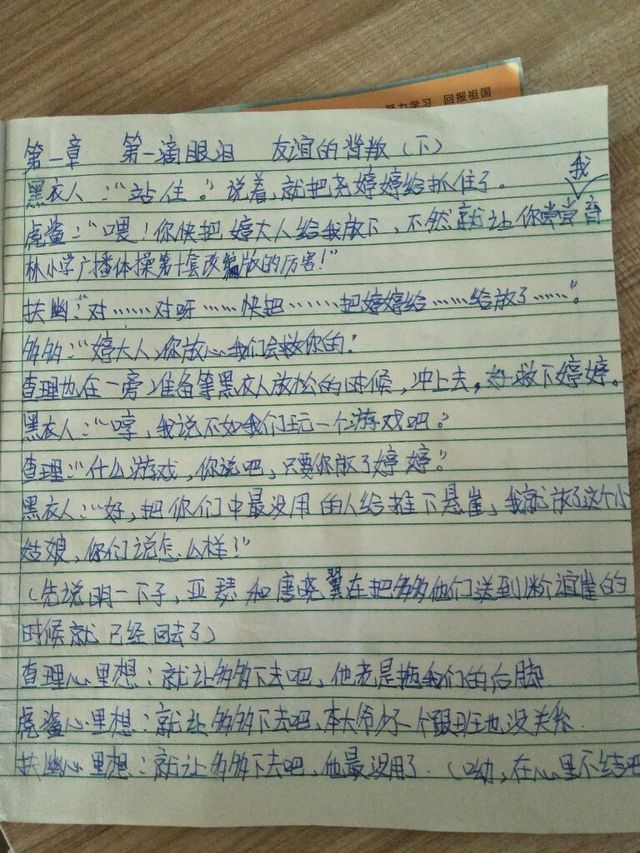 努力学习 回报祖国
第一章 第一滴眼泪 友谊的背叛（下）
黑衣人：“站住。”说着，就把尧婷婷给抓住了。
我
虎鲨：“喂！你快把婷大人给我放下，不然就让你尝尝育
林小学广播体操第十套改编版的厉害！”
扶幽：“对……对呀……快把……把婷婷给……给放了……”。
多多：“婷大人，你放心我们会救你的。”
查理也在一旁准备等黑衣人放松的时候，冲上去，好救下婷婷。
黑衣人：“哼，我说不如我们玩一个游戏吧？”
查理：“什么游戏，你说吧，只要你放了婷婷？”
黑衣人：“好，把你们中最没用的人给推下悬崖，我就放了这个小
姑娘，你们说怎么样！”
（先说明一下子，亚瑟和唐晓翼在把多多他们送到谊崖的
时候就已经回去了）
查理心里想：就让多多下去吧，他老是拖我们的后脚
虎鲨心里想：就让多多下去吧，本大爷少一个跟班也没关系.
扶幽心里想：就让多多下去吧，他最没用了.（呦，在心里不结吧